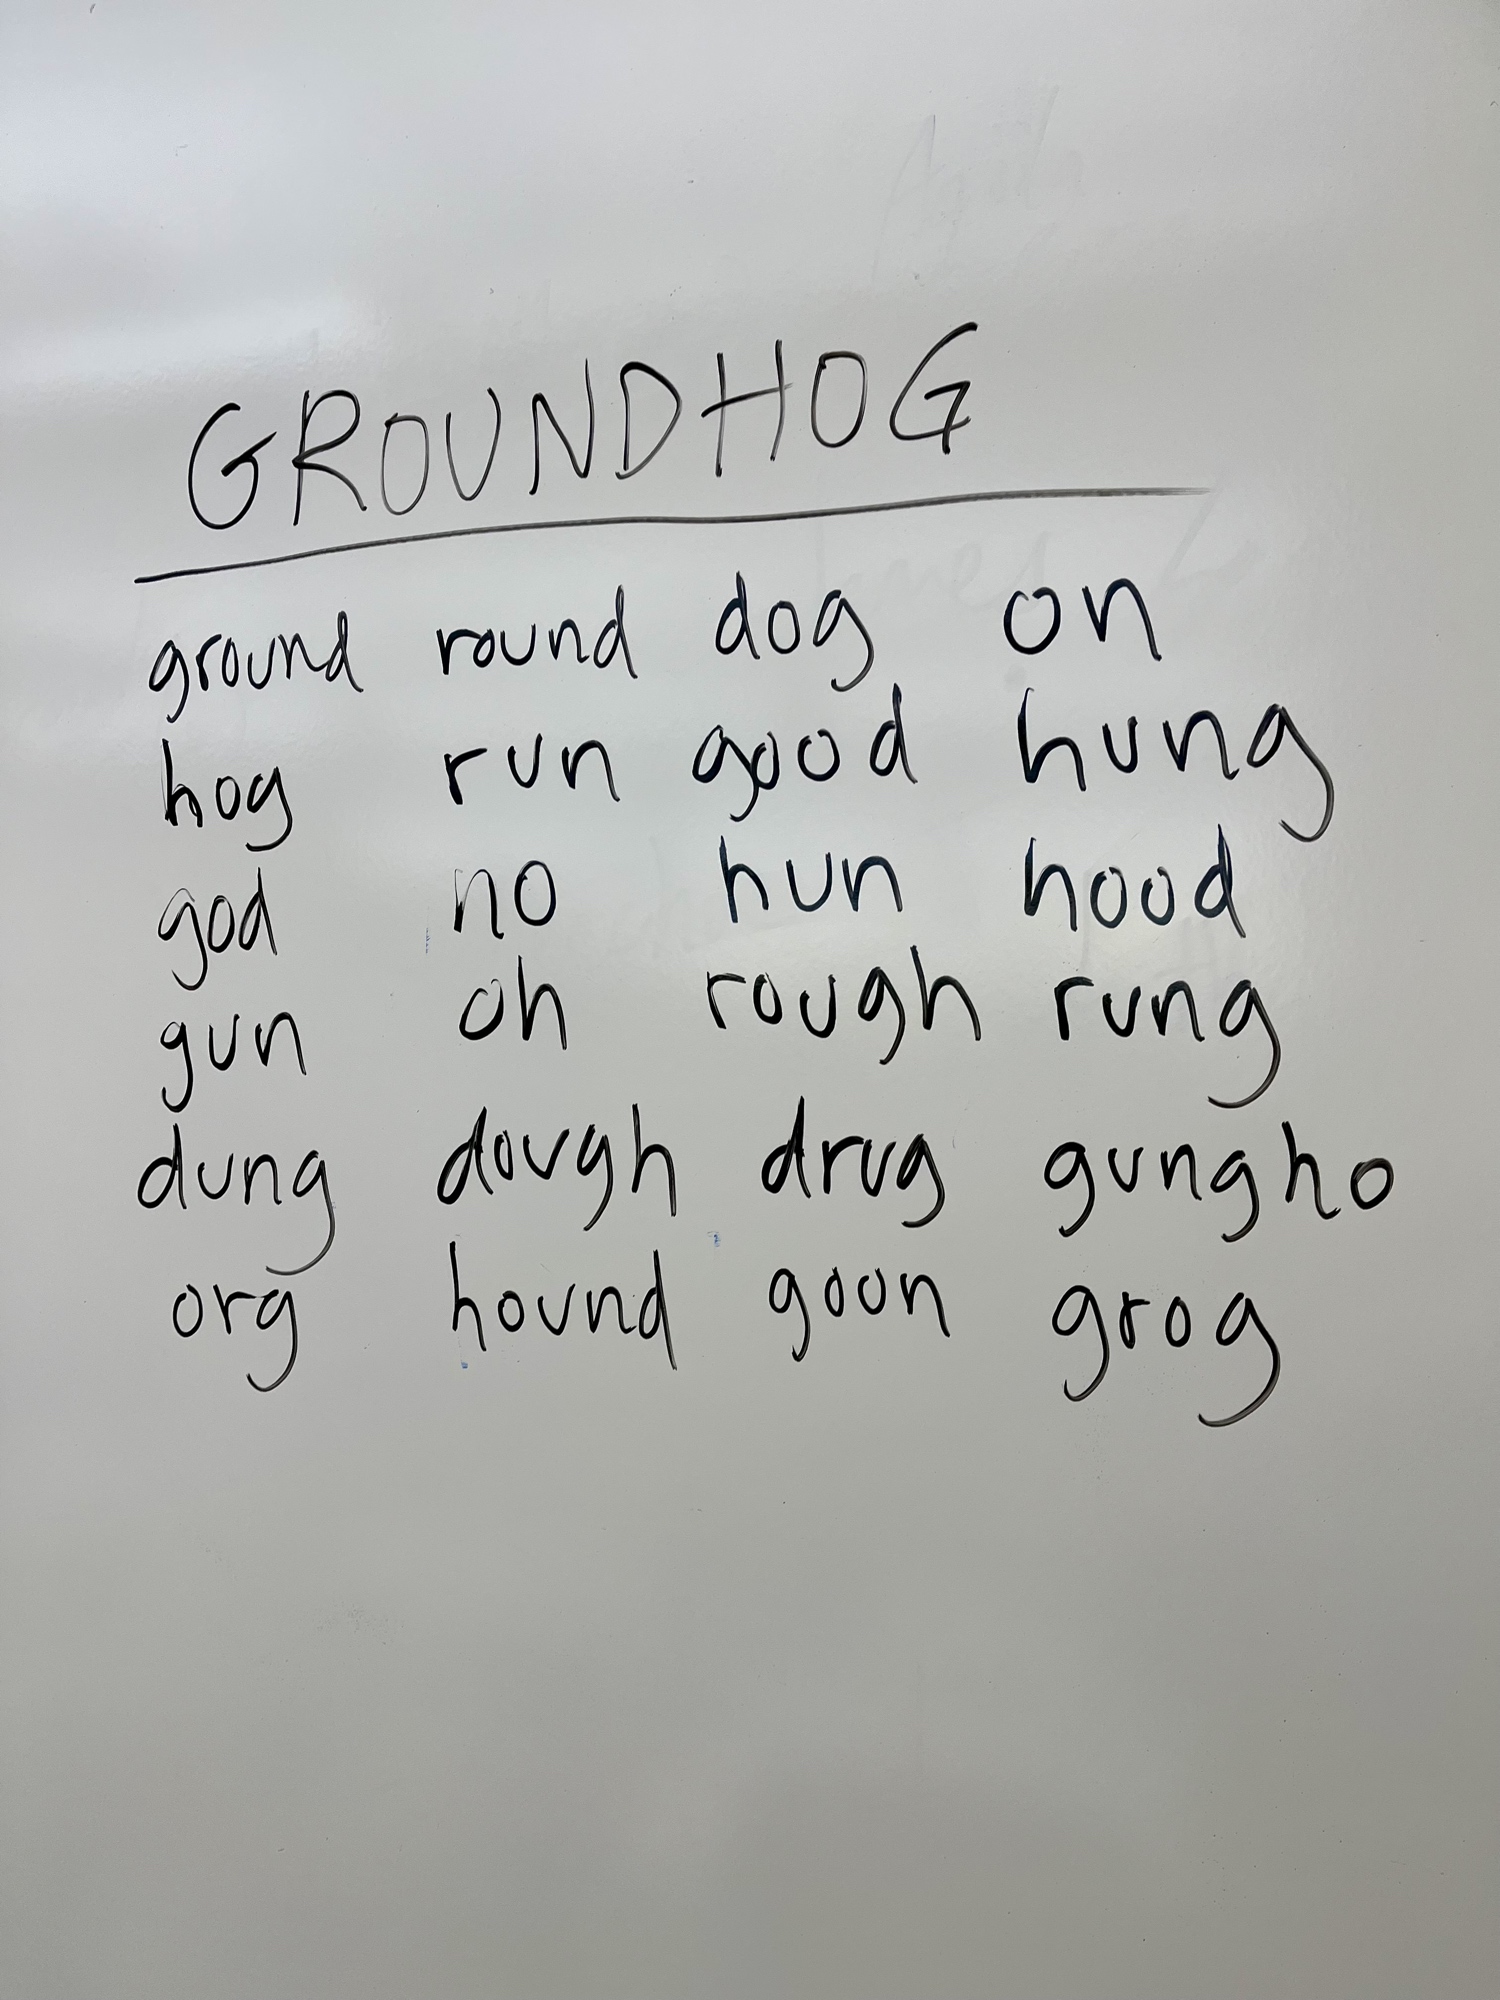 GROUNDHOG
ground round dog on
hog run good hung
god no hun hood
gun oh rough rung
dung dough drug gungho
org hound goon grog